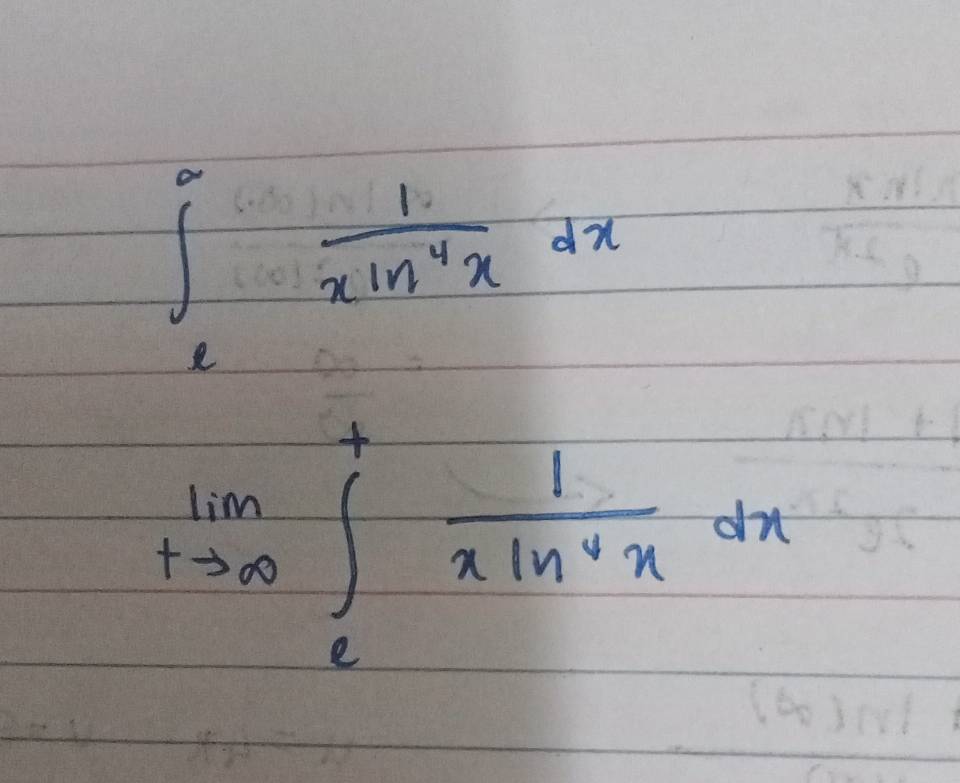 ∫_e^∞ 1/(x ln⁴ x) dx
lim_{t→∞} ∫_e^t 1/(x ln⁴ x) dx